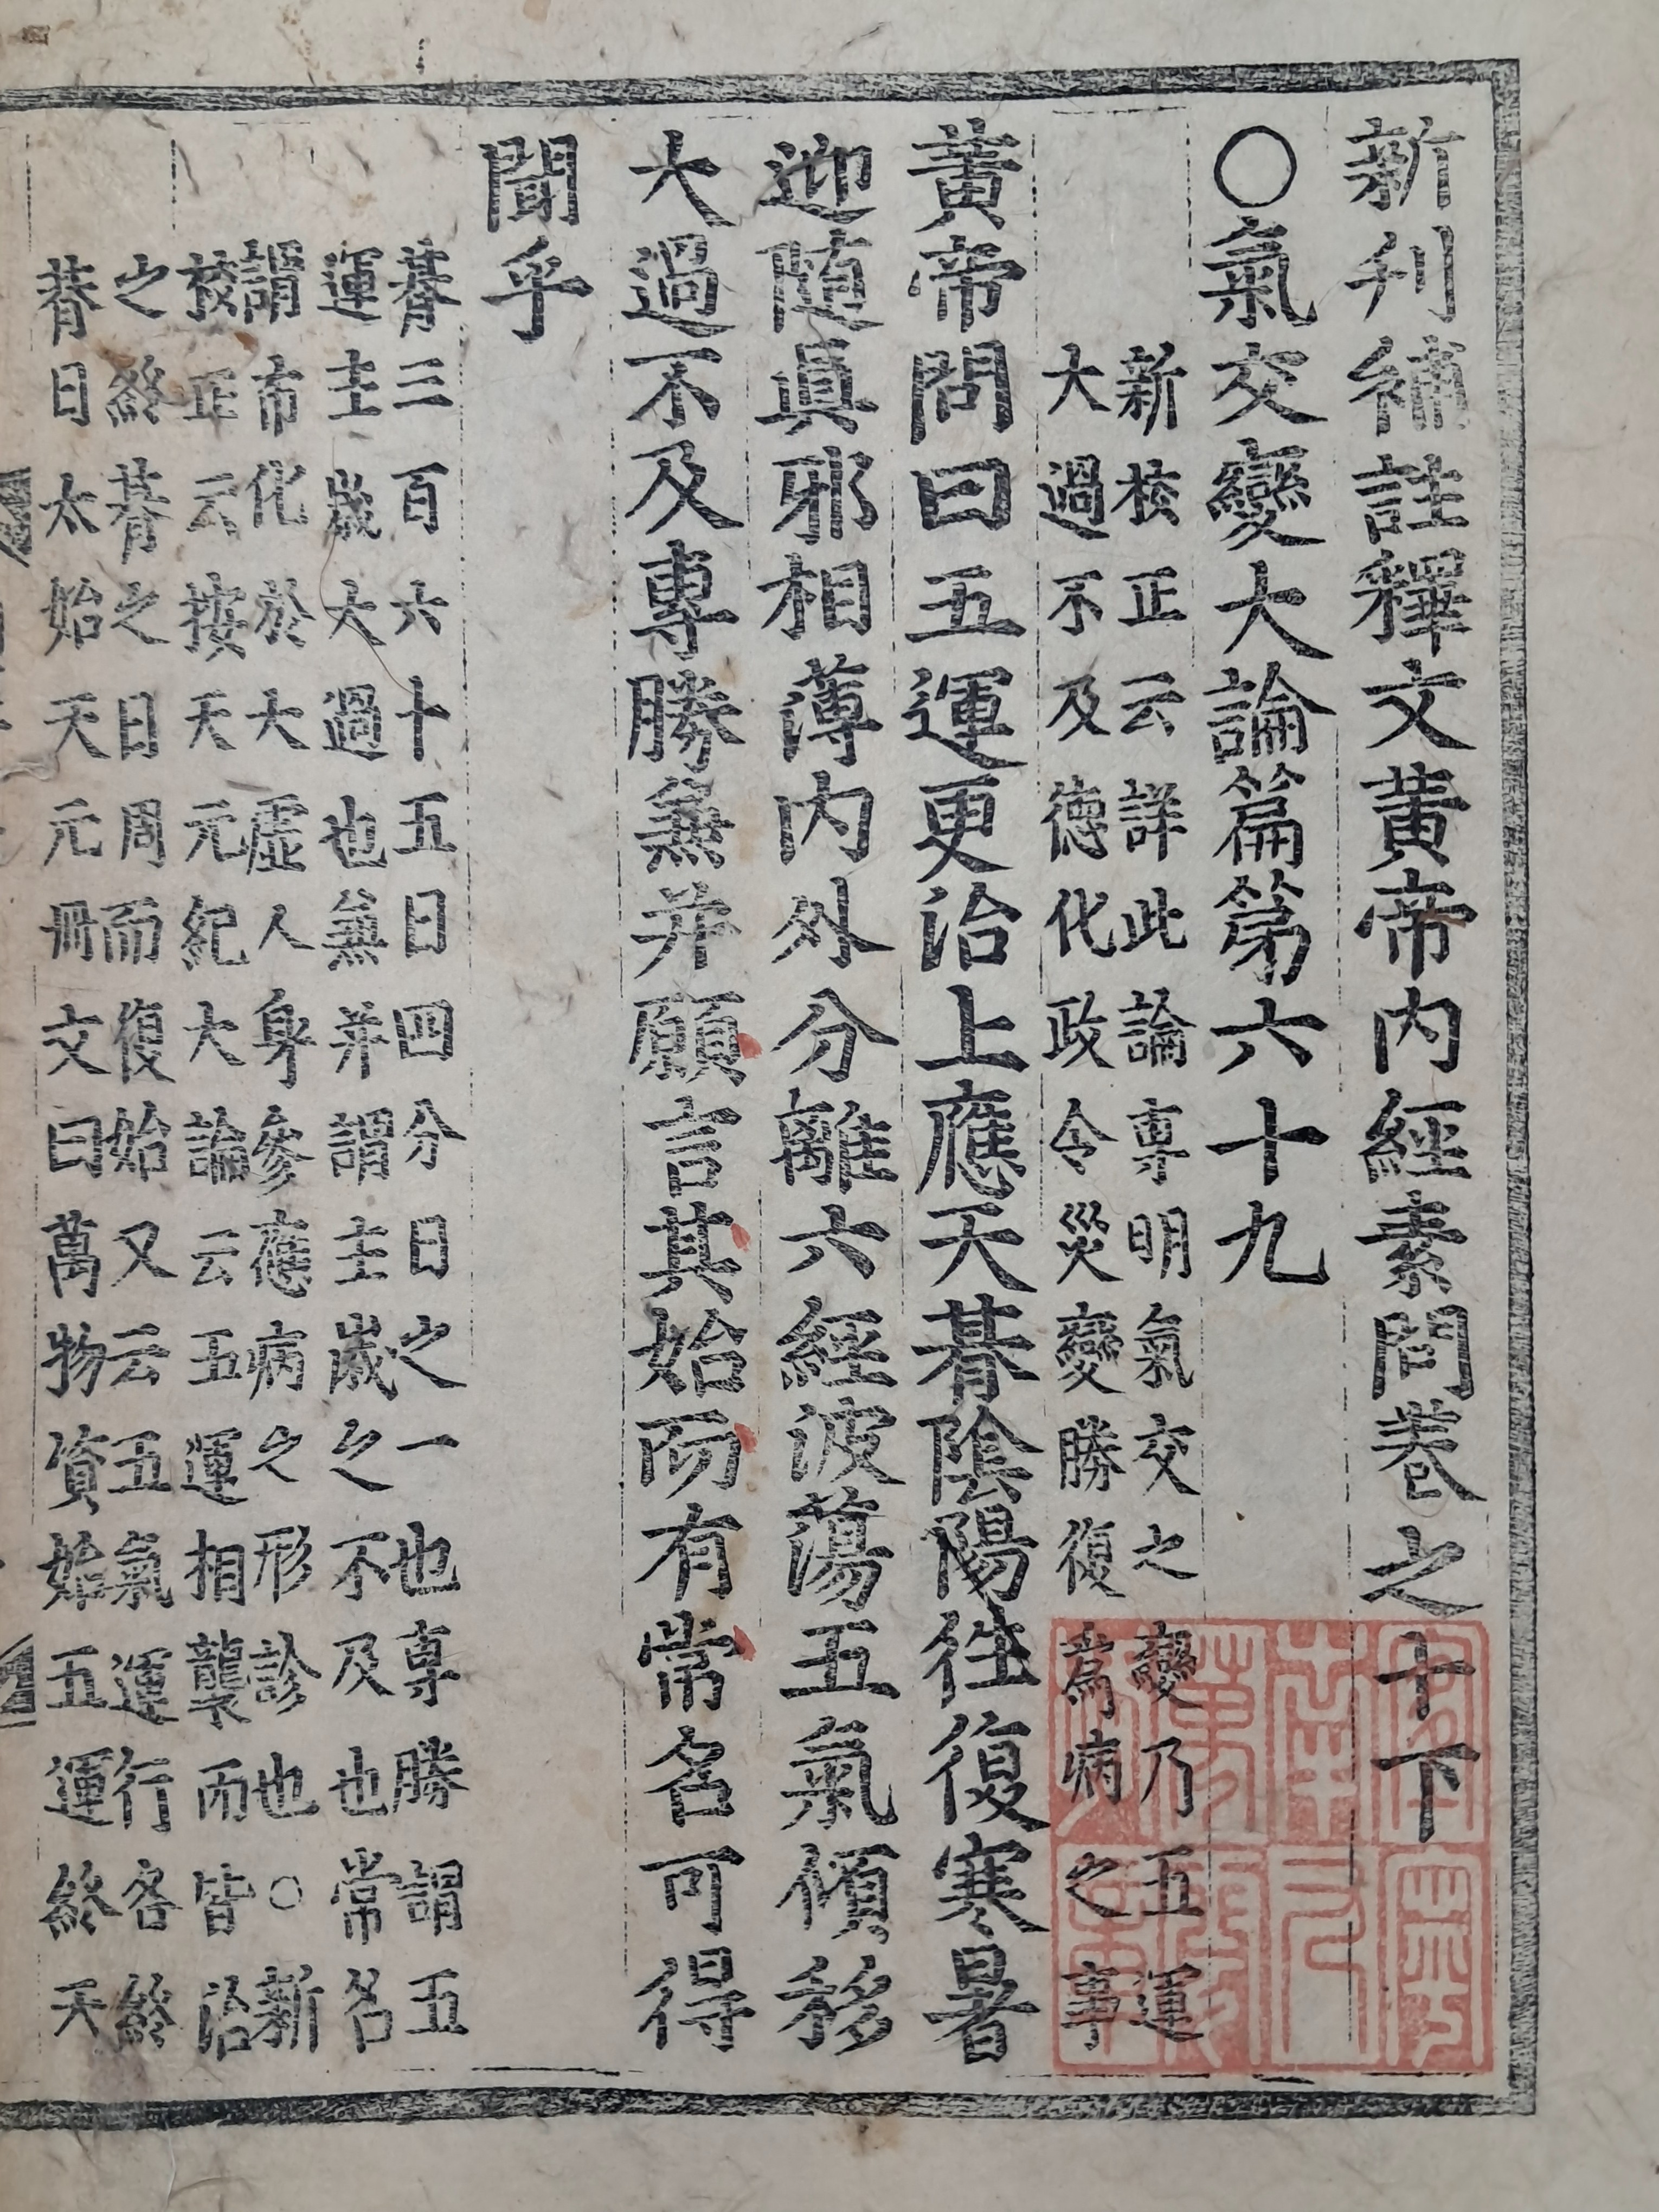 新刋補註釋文黃帝內經素問卷之十下
〇氣交變大論篇第六十九
新校正云詳此論專明氣交之變乃五運
大過不及德化政令災變勝復爲病之事
黃帝問曰五運更治上應天朞陰陽往復寒暑
迎随真邪相薄内外分離六經波蕩五氣傾移
大過不及專勝兼并願言其始而有常名可得
聞乎
朞三百六十五日四分日之一也専勝謂五
運主歲大過也兼并謂主歲之不及也常名
謂布化於大虛人身參應病之形診也〇新
校正云按天元紀大論云五運相襲而皆治
之終朞之日周而復始又云五氣運行各終
朞日太始天元冊文曰萬物資始五運終天